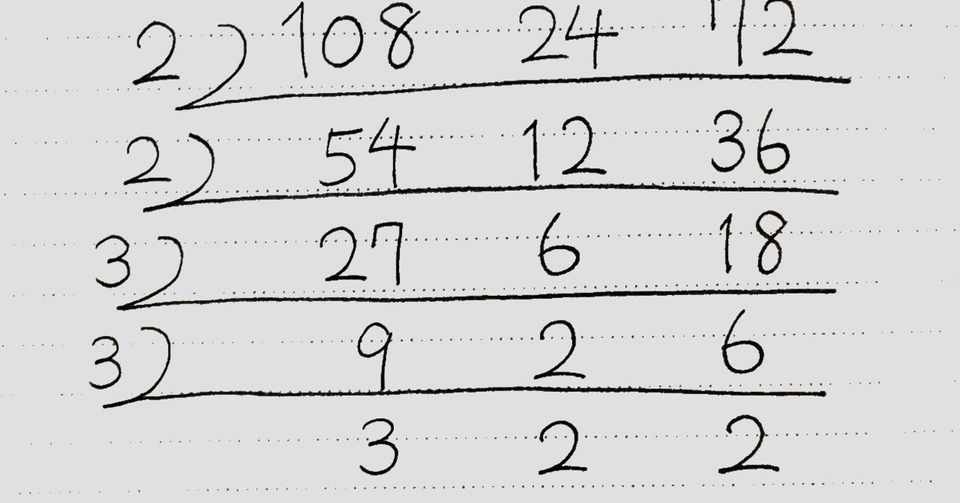 2) 108 24 72
2) 54 12 36
3) 27 6 18
3) 9 2 6
3 2 2